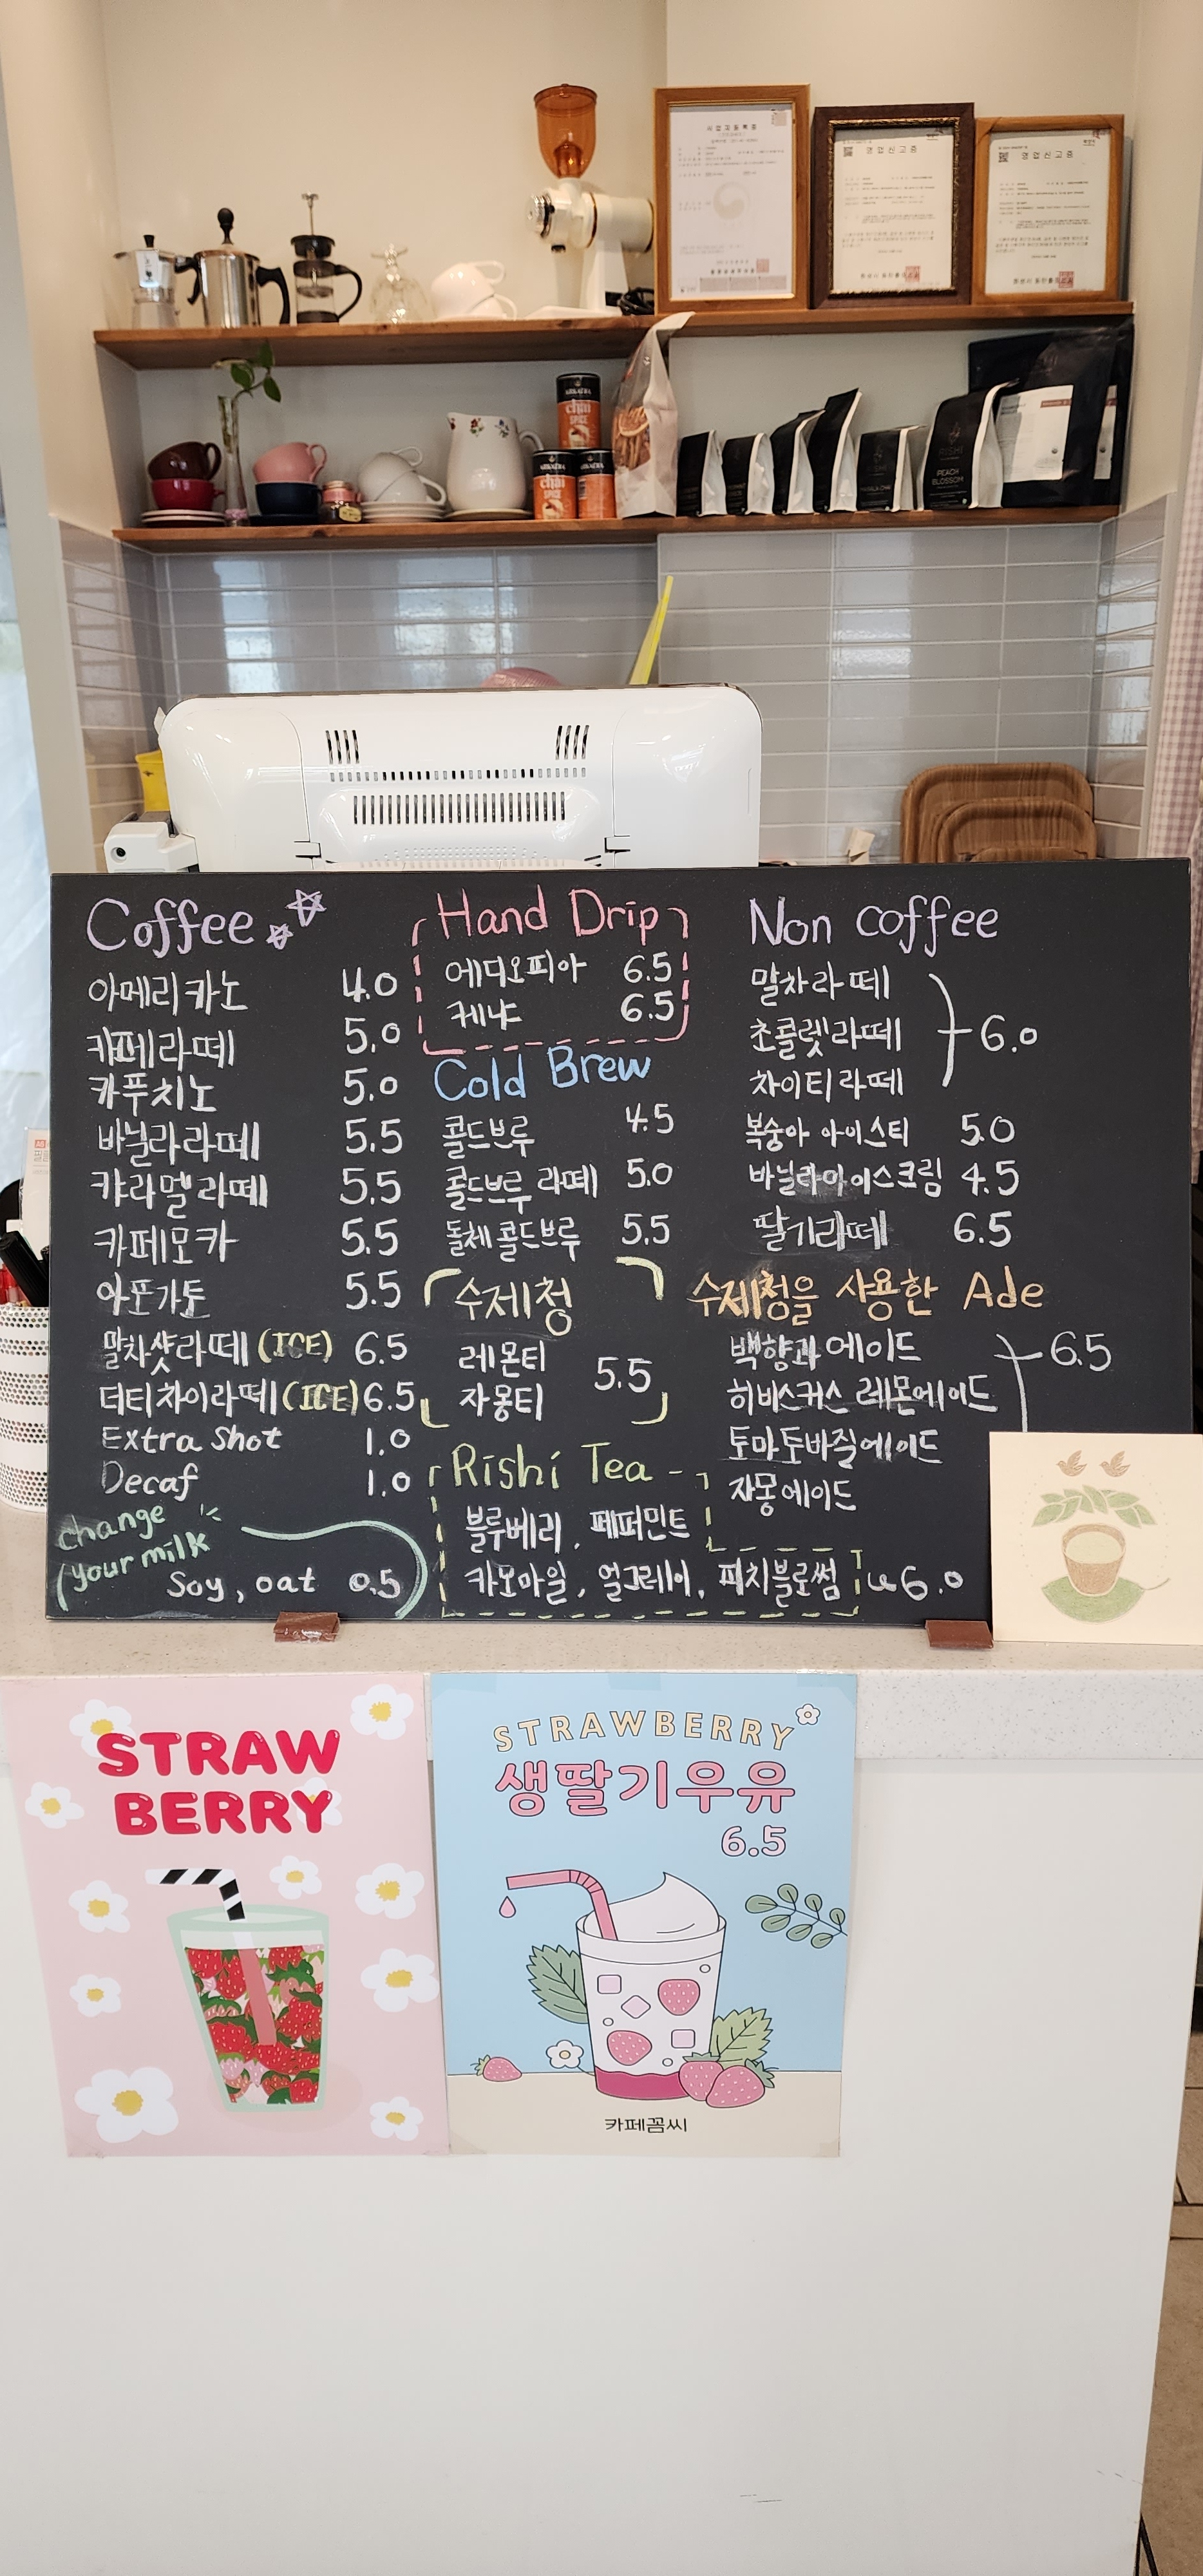 사업자등록증
영업신고증
영업신고증
ARKADIA
chai
SPICE
ARKADIA
chai
SPICE
ARKADIA
RISHI
PEACH
BLOSSOM
Coffee
아메리카노 4.0
카페라떼 5.0
카푸치노 5.0
바닐라라떼 5.5
캬라멜라떼 5.5
카페모카 5.5
아포가토 5.5
말차샷라떼 (ICE) 6.5
더티차이라떼 (ICE) 6.5
Extra Shot 1.0
Decaf 1.0
change
your milk
Soy, oat 0.5
Hand Drip
에디오피아 6.5
케냐 6.5
Cold Brew
콜드브루 4.5
콜드브루 라떼 5.0
돌체콜드브루 5.5
수제청
레몬티
자몽티
5.5
Rishi Tea
블루베리, 페퍼민트
카모마일, 얼그레이, 피치블로썸 6.0
Non coffee
말차라떼
초콜렛라떼
차이티라떼
6.0
복숭아 아이스티 5.0
바닐라아이스크림 4.5
딸기라떼 6.5
수제청을 사용한 Ade
백향과에이드
히비스커스 레몬에이드
토마토바질에이드
자몽에이드
6.5
STRAW
BERRY
STRAWBERRY
생딸기우유
6.5
카페꼼씨